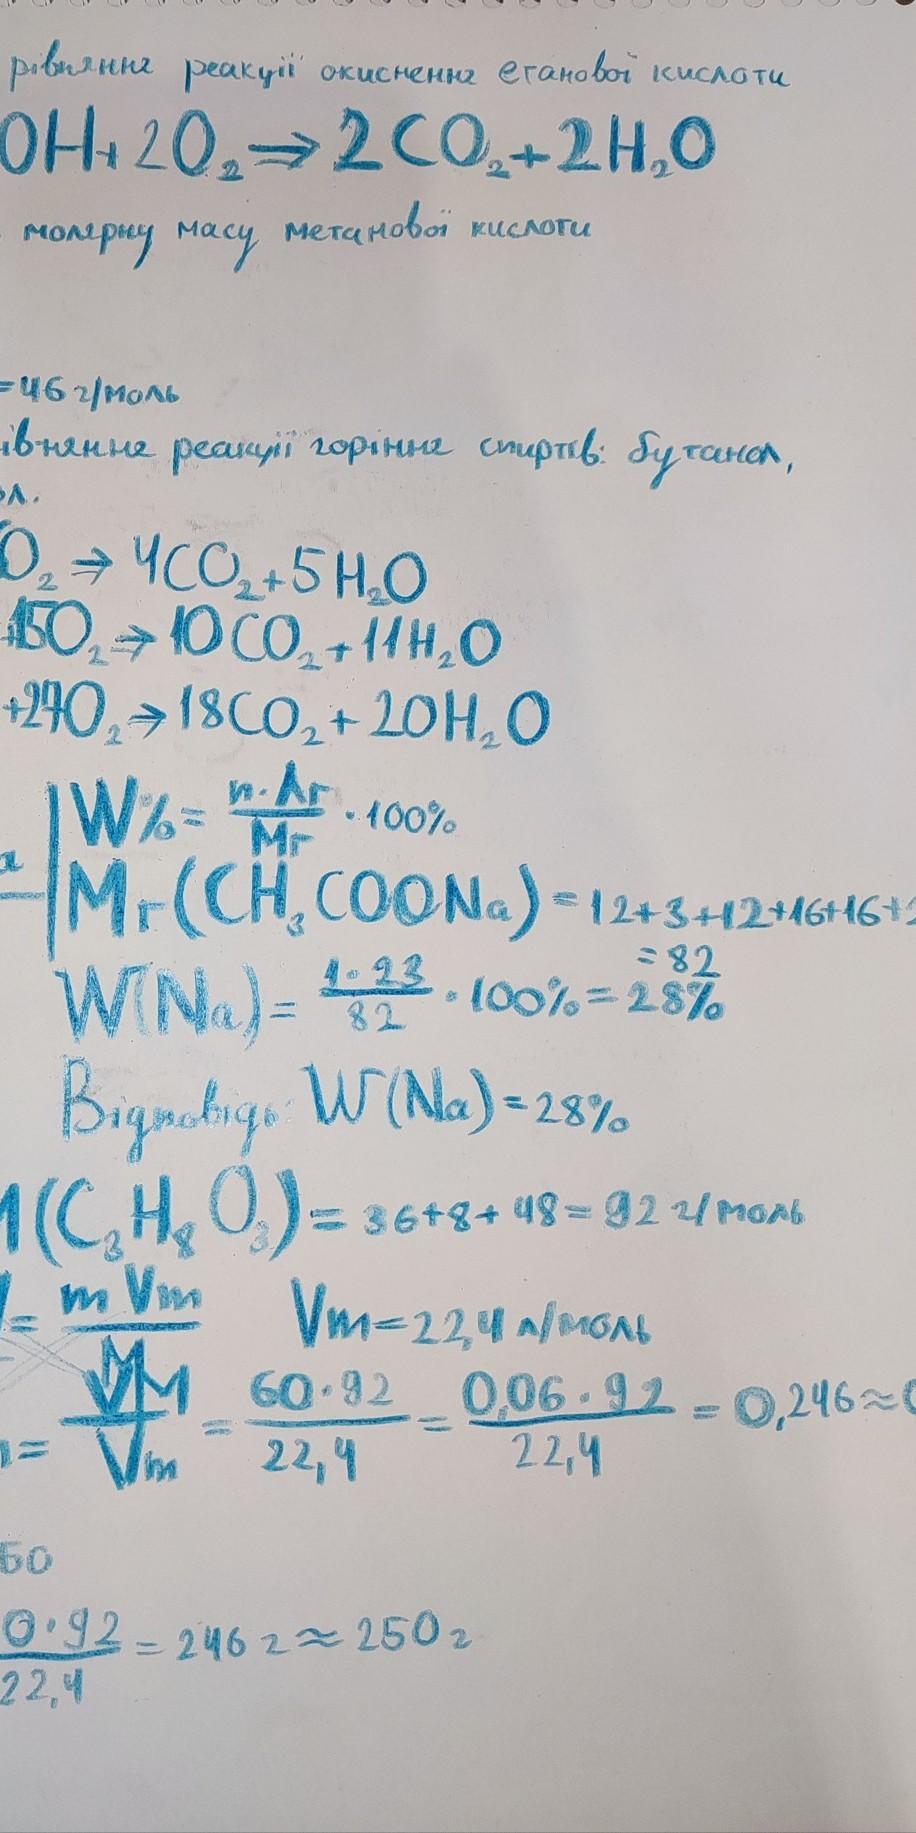 рівняння реакції окиснення етанової кислоти
OH+2O₂⇒2CO₂+2H₂O
молярну масу метанової кислоти
=46 г/моль
івняння реакції горіння спиртів: бутанол,
ол.
O₂⇒4CO₂+5H₂O
+15O₂⇒10CO₂+11H₂O
+27O₂⇒18CO₂+20H₂O
W%= n·Ar/Mr ·100%
Mr(CH₃COONa)=12+3+12+16+16+2
=82
W(Na)= 1·23/82 ·100%=28%
Відповідь: W(Na)=28%
M(C₃H₈O₃)=36+8+48=92 г/моль
V= m Vm/M Vm=22,4 л/моль
m= VM/Vm = 60·92/22,4 = 0,06·92/22,4 = 0,246≈0
бо
0·92/22,4 =246 г≈250 г